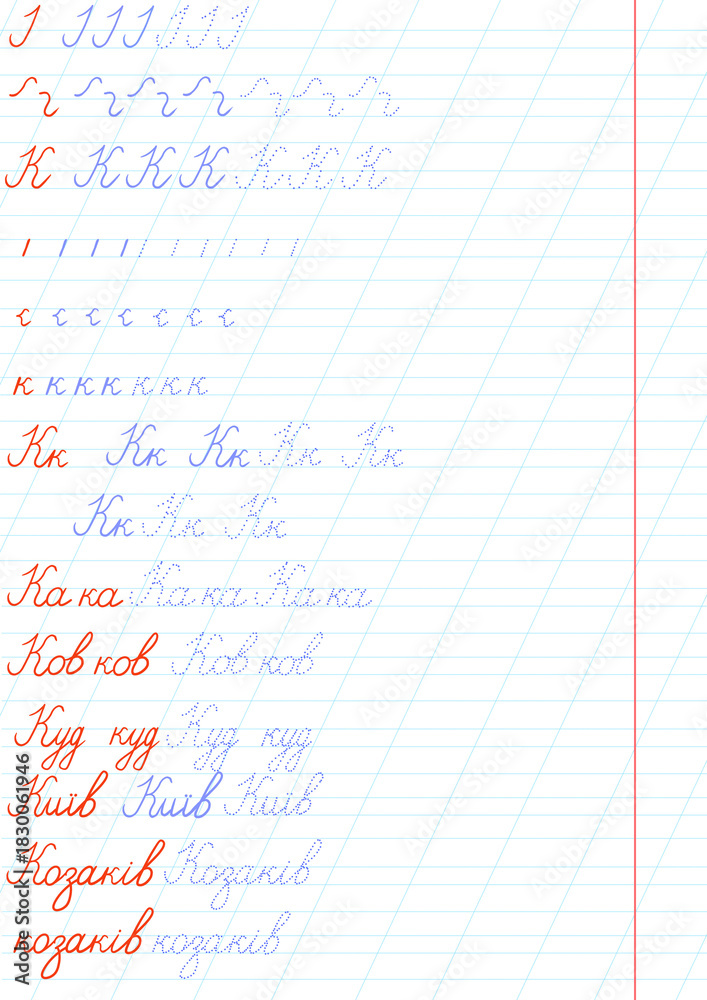 К К К К К К К
к к к к к к к
Кк Кк Кк Кк Кк
Кк Кк Кк
Ка ка Ка ка Ка ка
Ков ков Ков ков
Куд куд Куд куд
Київ Київ Київ
Козаків Козаків
козаків козаків
Adobe Stock | #1830061946